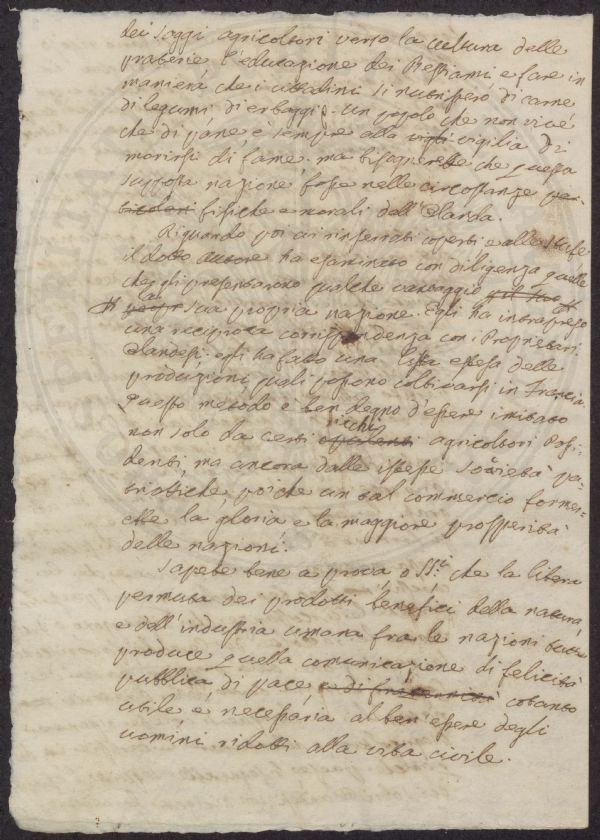 dei saggi agricoltori verso la cultura delle
praterie l'educazione dei Bestiami e fare in
maniera che i cittadini si nutrissero di carne
di legumi d'erbaggi. un popolo che non vive
che di pane, è sempre alla vigilia di
morirsi di fame. ma bisognerebbe che questa
supposta nazione fosse nelle circostanze par-
ticolari fisiche e morali dell'Olanda.
Riguardo poi ai rinserrati coperti e alle Stufe
il dotto Autore ha esaminato con diligenza quelle
che gli presentarono qualche vantaggio
# la sua propria nazione. Egli ha intrapreso
una reciproca corrispondenza con i Proprietari
Olandesi. egli ha fatto una lista estesa delle
produzioni quali possono coltivarsi in Francia
questo metodo è ben degno d'essere imitato
non solo da certi ricchi agricoltori Possi-
denti, ma ancora dalle istesse società pa-
triottiche, poiché un tal commercio forme-
rebbe la gloria e la maggiore prosperità
delle nazioni.
Sapete bene a prova, o SS.ri che la libera
permuta dei prodotti benefici della natura
e dell'industria umana fra le nazioni tutte
produce quella comunicazione di felicità
pubblica, di pace e di fraternità cotanto
utile e necessaria al ben essere degli
uomini ridotti alla vita civile.